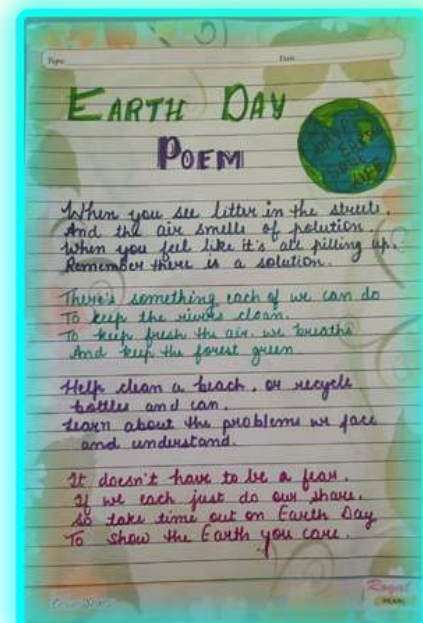 Topic
Date
EARTH DAY
POEM
SAVE
EARTH
SAVE
LIFE
When you see litter in the streets,
And the air smells of polution.
When you feel like it's all pilling up,
Remember there is a solution.
There's something each of we can do
To keep the rivers clean.
To keep fresh the air we breathe
And keep the forest green
Help clean a beach, or recycle
bottles and can.
Learn about the problems we face
and understand.
It doesn't have to be a fear,
If we each just do our share.
So take time out on Earth Day
To show the Earth you care.
Royal
PEARL